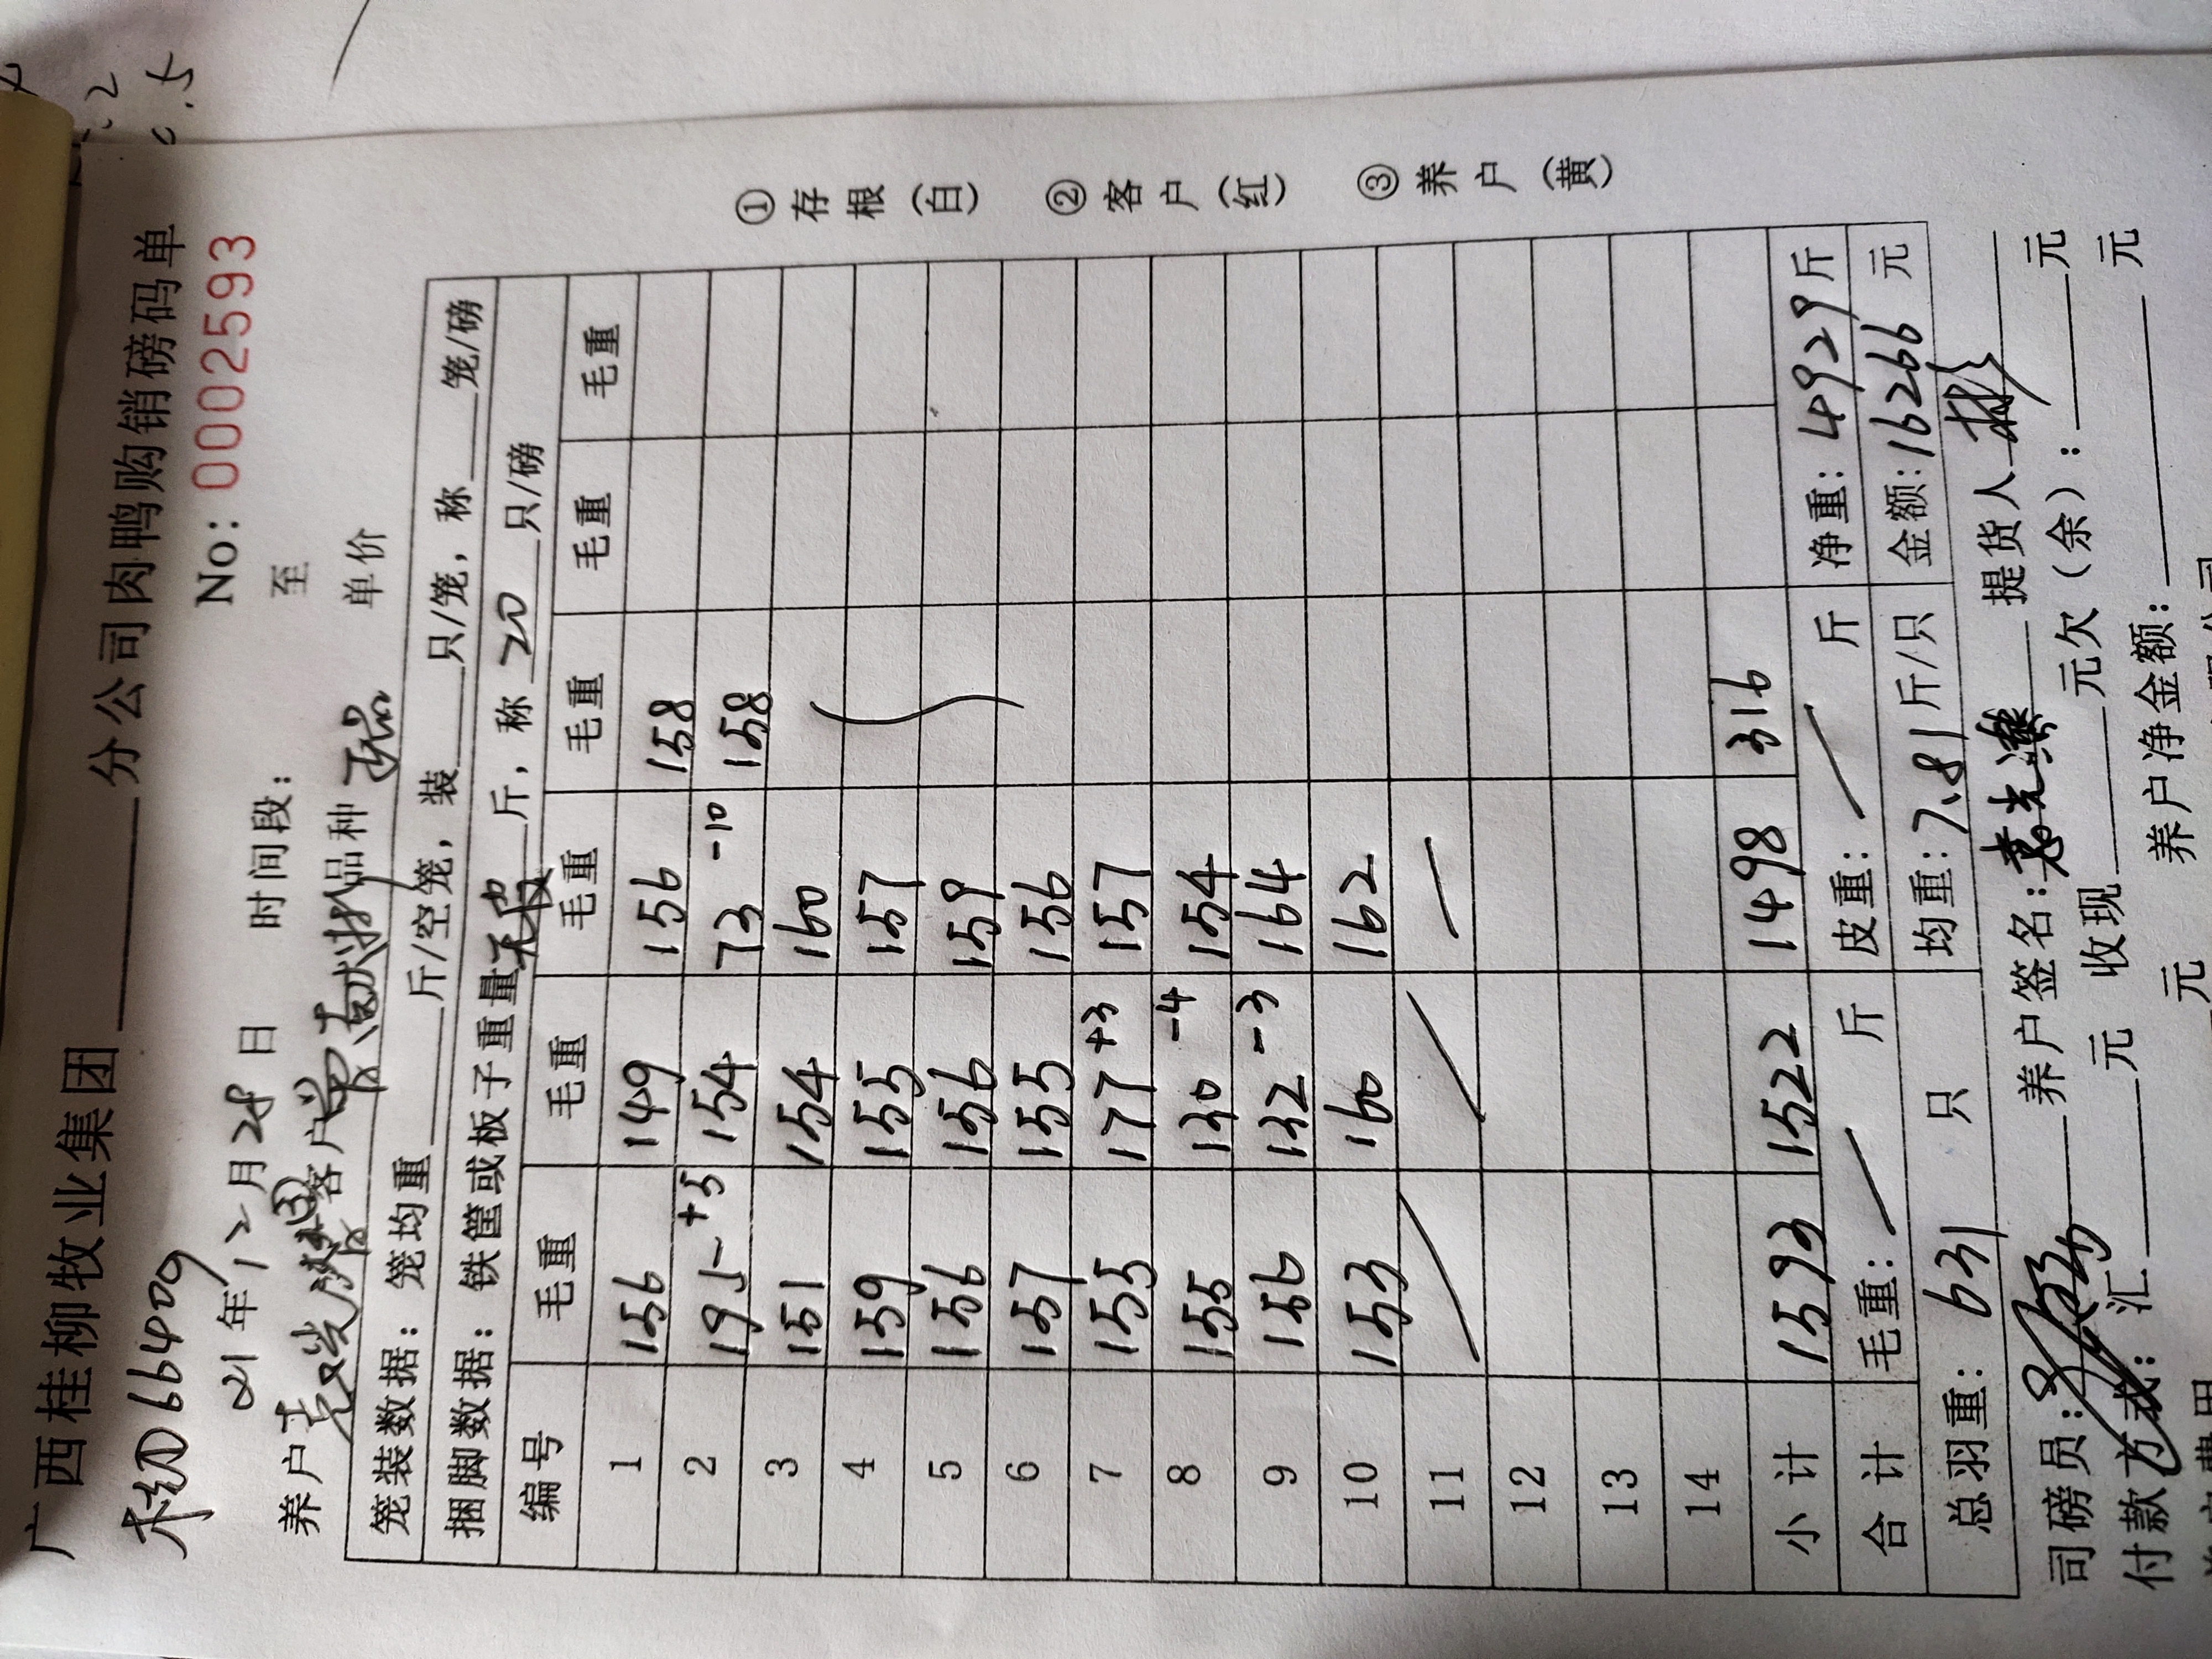 广西桂柳牧业集团______分公司肉鸭购销磅码单
66409 No: 0002593
21年12月28日 时间段: 至
养户 客户 品种 单价
笼装数据: 笼均重____斤/空笼, 装____只/笼, 称____笼/磅
捆脚数据: 铁筐或板子重量无皮斤, 称20只/磅
编号 毛重 毛重 毛重 毛重 毛重 毛重
1 156 149 156 158
2 195 +5 154 73 -10 158
3 151 154 160
4 159 155 157
5 156 156 159
6 157 155 156
7 155 177 +3 157
8 155 130 -4 154
9 156 132 -3 164
10 153 160 162
11
12
13
14
小计 1593 1522 1498 316
合计 毛重: 斤 皮重: 斤 净重: 4929斤
总羽重: 631 只 均重: 7.81斤/只 金额: 16266 元
司磅员: 养户签名: 提货人
付款方式: 汇____元 收现____元欠(余): ____元
元 养户净金额: ____元
①存根(白) ②客户(红) ③养户(黄)